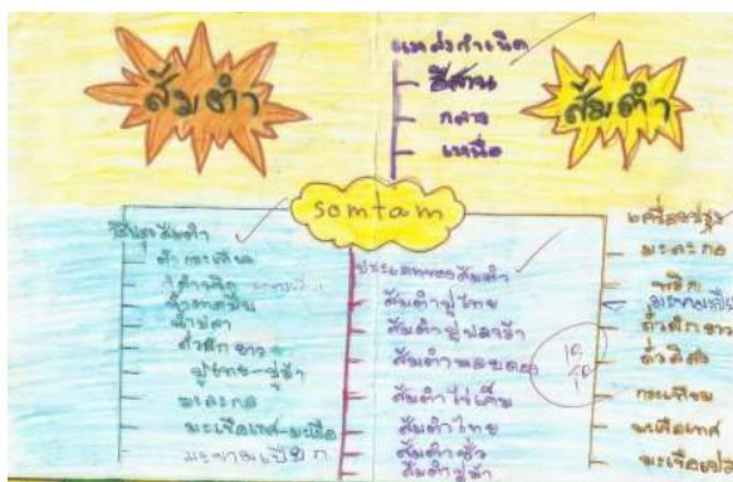 ส้มตำ
แหล่งกำเนิด
อีสาน
กลาง
เหนือ
ส้มตำ
somtam
วิธีปรุงส้มตำ
ตำกระเทียม
น้ำตาลปี๊บ
น้ำปลา
ถั่วฝักยาว
ปูไทย-ปูม้า
มะละกอ
มะเขือเทศ-มะเขือ
มะขามเปียก
ประเภทของส้มตำ
ส้มตำปูไทย
ส้มตำปูปลาร้า
ส้มตำหอยดอง
ส้มตำไข่เค็ม
ส้มตำไทย
ส้มตำซั่ว
ส้มตำปูม้า
เครื่องปรุง
มะละกอ
พริก
ถั่วฝักยาว
ถั่วลิสง
กระเทียม
มะเขือเทศ
มะเขือเปราะ